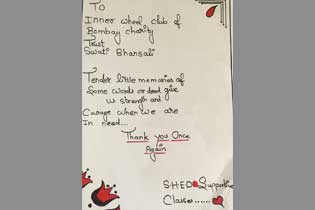 To
Inner wheel club of
Bombay charity
Trust
Swati Bhansali
Tender little memories of
Some words or deed give
us strength and
Curage when we are
In need....
Thank you Once
Again
SHED Supportive
Classes......